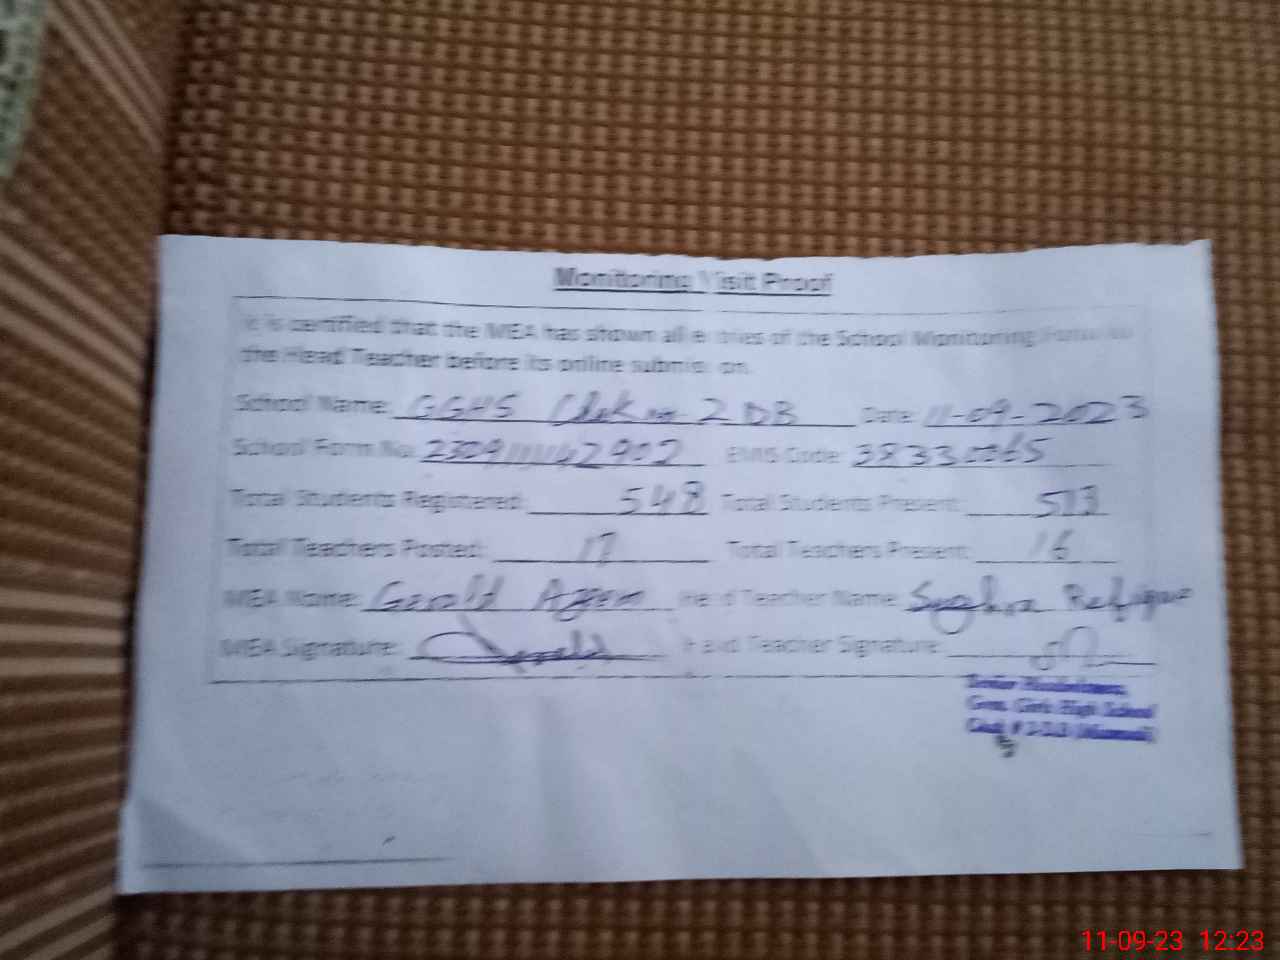 Monitoring Visit Proof
It is certified that the MEA has shown all entries of the School Monitoring Form to
the Head Teacher before its online submission.
School Name: GGHS Chak no 2 DB Date: 11-09-2023
School Form No: EMIS Code: 38330065
Total Students Registered: 548 Total Students Present: 513
Total Teachers Posted: 17 Total Teachers Present: 16
MEA Name: Gerald Azeem Head Teacher Name: Rafique
MEA Signature: Head Teacher Signature:
Senior Headmistress
Govt. Girls High School
Chak # 2-D.B
11-09-23 12:23